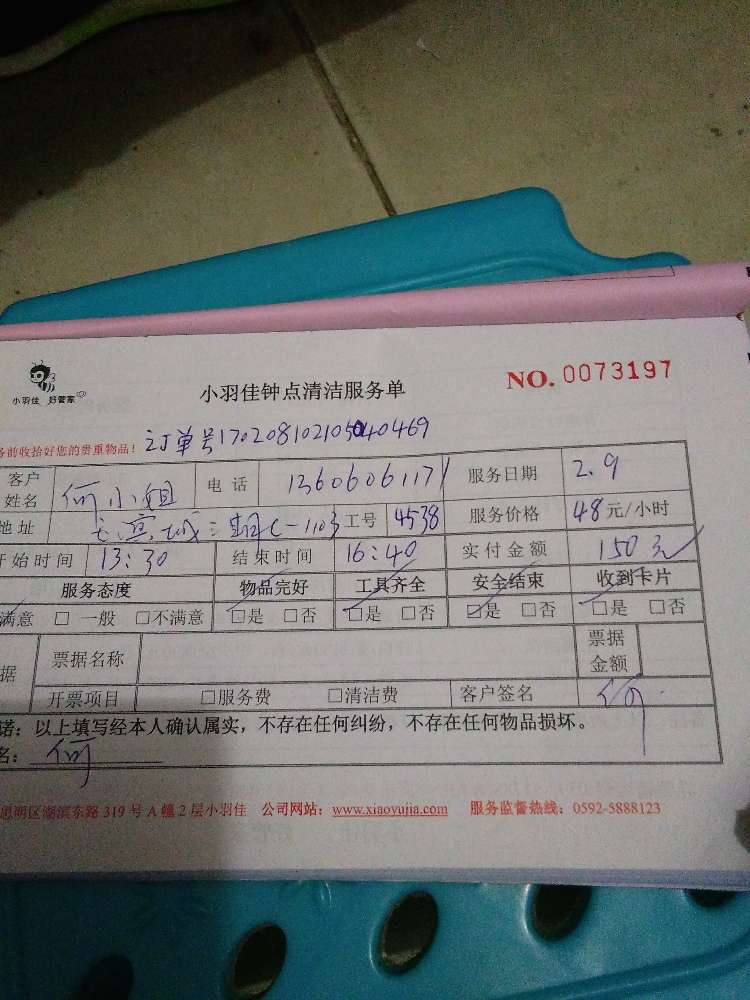 小羽佳 好管家
小羽佳钟点清洁服务单
NO. 0073197
务前收拾好您的贵重物品！ 订单号170208102105040469
客户姓名 何小姐 电话 13606061171 服务日期 2.9
地址 三期C-1103 工号 4538 服务价格 48元/小时
开始时间 13:30 结束时间 16:40 实付金额 150元
服务态度 物品完好 工具齐全 安全结束 收到卡片
满意 □ 一般 □不满意 □是 □否 □是 □否 □是 □否 □是 □否
据 票据名称 票据金额
开票项目 □服务费 □清洁费 客户签名 何
诺：以上填写经本人确认属实，不存在任何纠纷，不存在任何物品损坏。
名： 何
思明区湖滨东路319号A幢2层小羽佳 公司网站：www.xiaoyujia.com 服务监督热线：0592-5888123